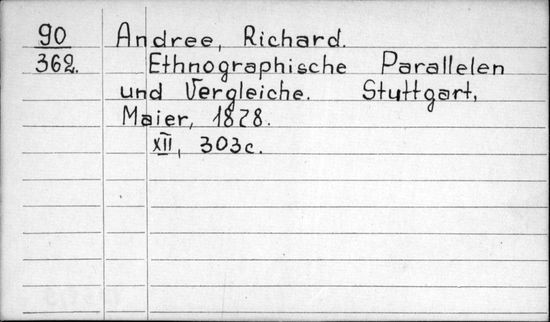 90 Andree, Richard.
362. Ethnographische Parallelen
und Vergleiche. Stuttgart,
Maier, 1878.
XII, 303c.